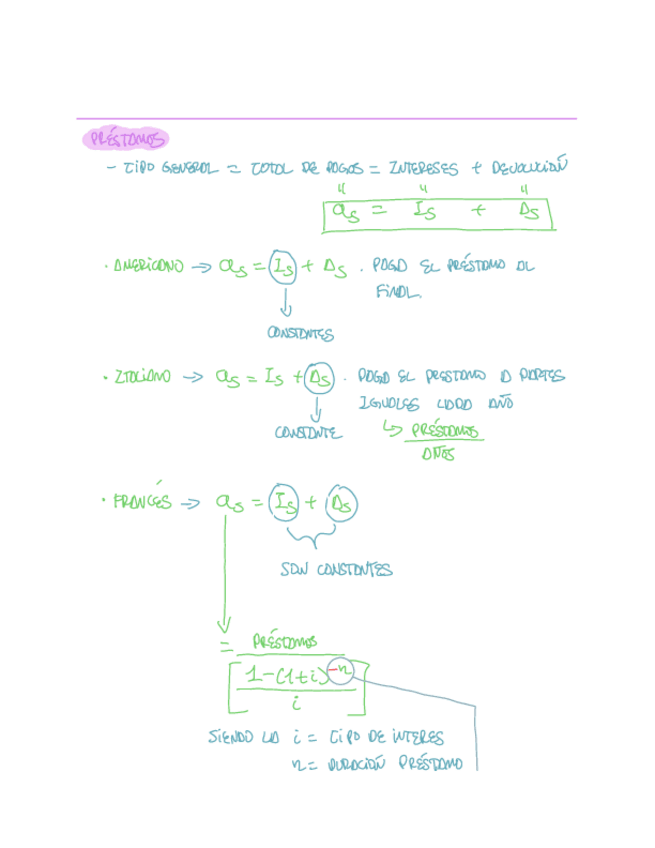 PRÉSTAMOS
- TIPO GENERAL = TOTAL DE PAGOS = INTERESES + DEVOLUCIÓN
" " "
as = Is + As
· AMERICANO → as = Is + As . PAGO EL PRÉSTAMO AL
FINAL.
CONSTANTES
· ITALIANO → as = Is + As . PAGO EL PRESTAMO A PARTES
IGUALES CADA AÑO
CONSTANTE ↳ PRÉSTAMOS
AÑOS
· FRANCÉS → as = Is + As
SON CONSTANTES
= PRÉSTAMOS
[1-(1+i)^-n
i]
SIENDO LA i = TIPO DE INTERES
n = DURACIÓN PRÉSTAMO